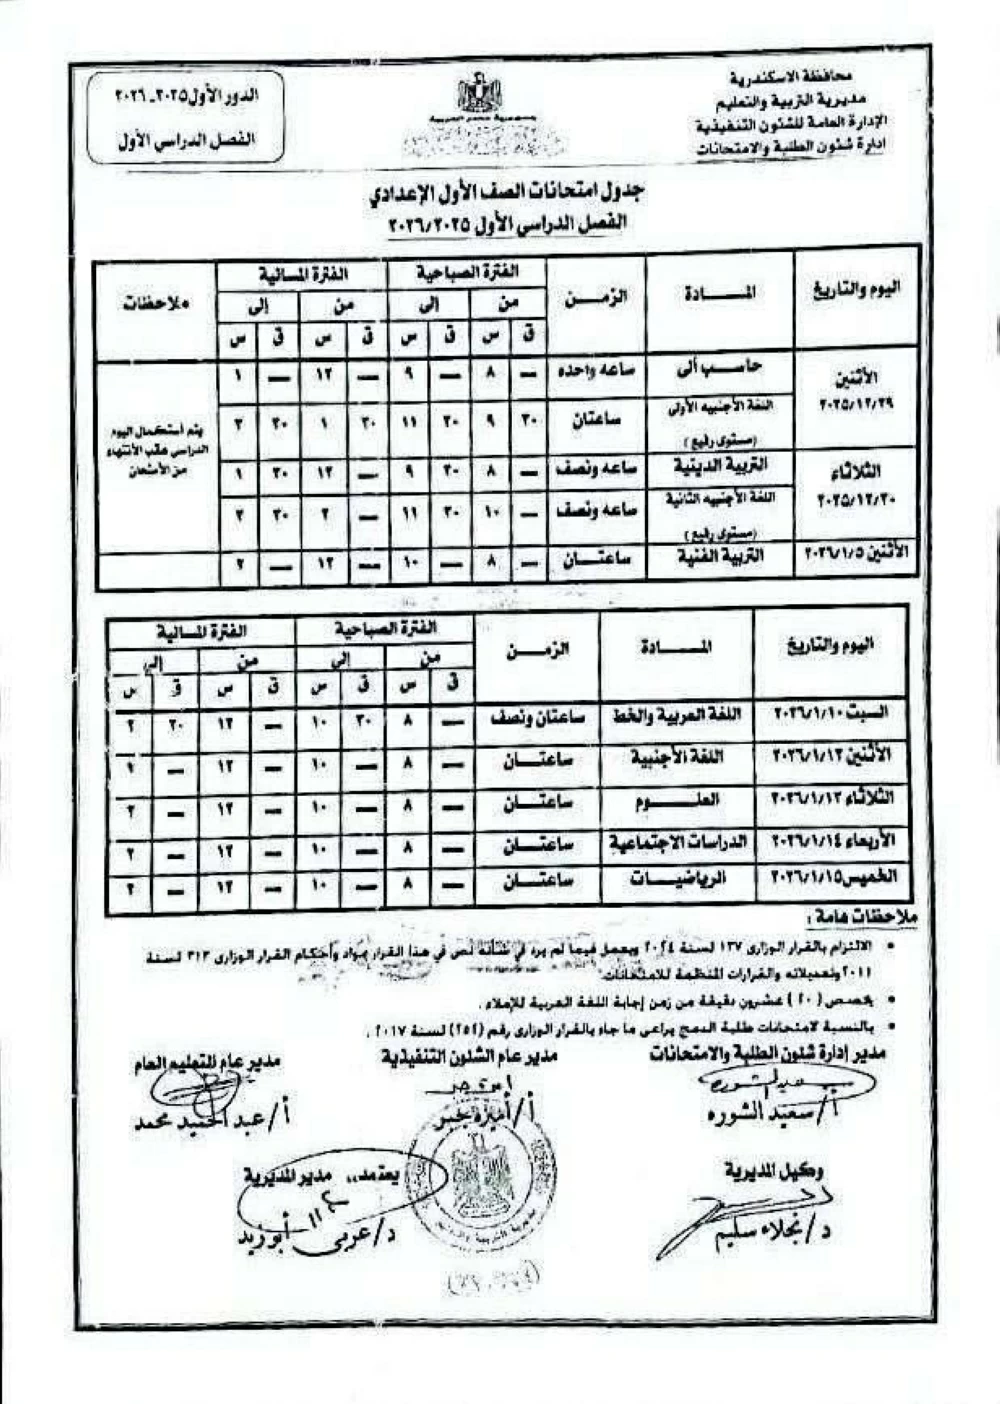 محافظة الاسكندرية
مديرية التربية والتعليم
الإدارة العامة للشئون التنفيذية
ادارة شئون الطلبة والامتحانات
جمهورية مصر العربية
الدور الأول ٢٠٢٥ـ ٢٠٢٦
الفصل الدراسي الأول
جدول امتحانات الصف الأول الإعدادي
الفصل الدراسي الأول ٢٠٢٦/٢٠٢٥
اليوم والتاريخ المــــادة الزمــن الفترة الصباحية الفترة المسائية ملاحظات
من إلى من إلى
ق س ق س ق س ق س
الأثنين ٢٠٢٥/١٢/٢٩ حاسـب ألى ساعه واحده — ٨ — ٩ — ١٢ — ١
اللغة الأجنبيه الأولى (مستوى رفيع) ساعتان ٣٠ ٩ ٣٠ ١١ ٣٠ ١ ٣٠ ٣
الثلاثاء ٢٠٢٥/١٢/٣٠ التربية الدينية ساعه ونصف — ٨ ٣٠ ٩ — ١٢ ٣٠ ١
اللغة الأجنبيه الثانية (مستوى رفيع) ساعه ونصف — ١٠ ٣٠ ١١ — ٢ ٣٠ ٣
يتم أستكمال اليوم
الدراسى عقب الأنتهاء
من الأمتحان
الأثنين ٢٠٢٦/١/٥ التربية الفنية ساعتـــان — ٨ — ١٠ — ١٢ — ٢
اليوم والتاريخ المــــادة الزمــن الفترة الصباحية الفترة المسائية
من إلى من إلى
ق س ق س ق س ق س
السبت ٢٠٢٦/١/١٠ اللغة العربية والخط ساعتان ونصف — ٨ ٣٠ ١٠ — ١٢ ٣٠ ٢
الأثنين ٢٠٢٦/١/١٢ اللغة الأجنبية ساعتـــان — ٨ — ١٠ — ١٢ — ٢
الثلاثاء ٢٠٢٦/١/١٣ العلـــوم ساعتـــان — ٨ — ١٠ — ١٢ — ٢
الأربعاء ٢٠٢٦/١/١٤ الدراسات الاجتماعية ساعتـــان — ٨ — ١٠ — ١٢ — ٢
الخميس ٢٠٢٦/١/١٥ الرياضيـــات ساعتـــان — ٨ — ١٠ — ١٢ — ٢
ملاحظات هامة :
• الالتزام بالقرار الوزارى ١٣٧ لسنة ٢٠٢٤ ويعمل فيما لم يرد في شأنه نص في هذا القرار بمواد وأحكام القرار الوزارى ٣١٣ لسنة
٢٠١١ وتعديلاته والقرارات المنظمة للامتحانات
• يخصص ( ٢٠ ) عشرون دقيقة من زمن إجابة اللغة العربية للإملاء .
• بالنسبة لامتحانات طلبة الدمج يراعى ما جاء بالقرار الوزارى رقم (٢٥٢) لسنة ٢٠١٧ .
مدير إدارة شئون الطلبة والامتحانات مدير عام الشئون التنفيذية مدير عام التعليم العام
أ/ سعيد الشوره أ/ أميرة جبر أ/ عبد الحميد محمد
وكيل المديرية يعتمد،، مدير المديرية
د/ نجلاء سليم د/ عربى أبوزيد
مديرية التربية والتعليم